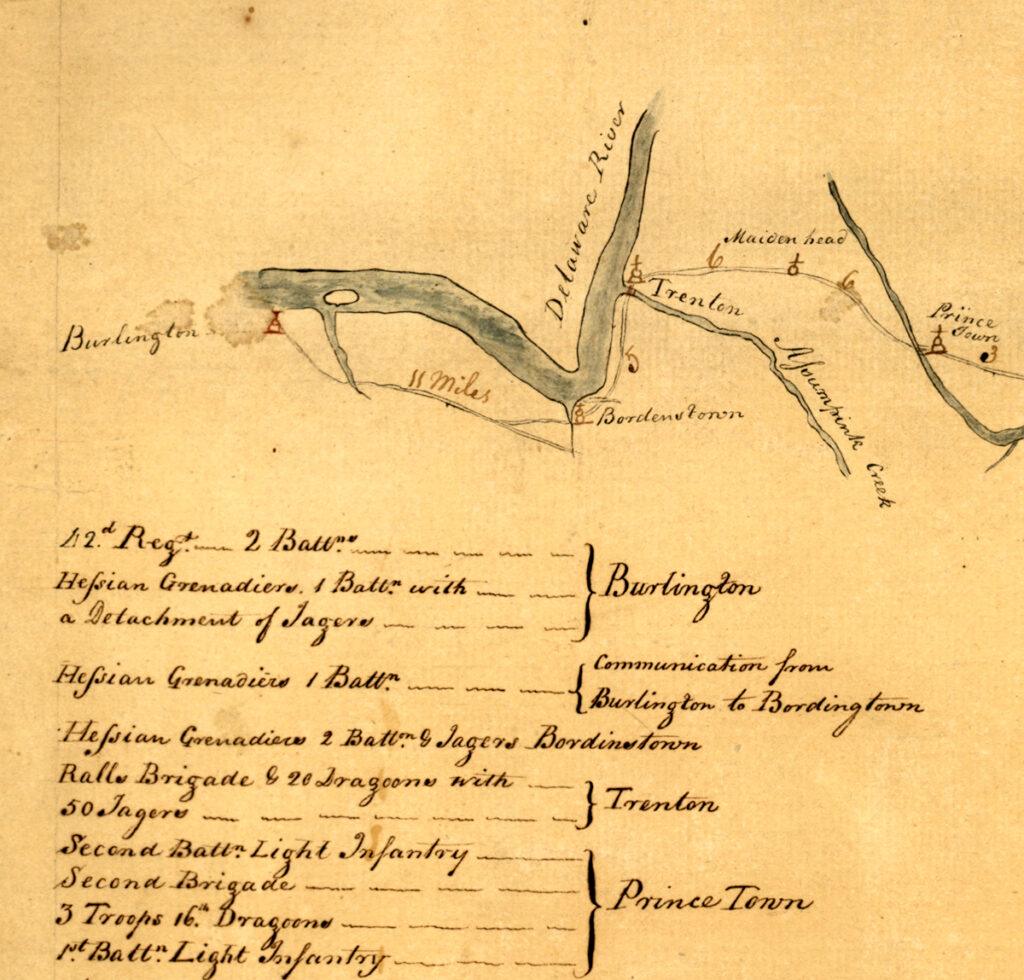 Delaware River
Maiden head
6
6
Trenton
Prince
Town
3
Burlington
11 Miles
5
Bordenstown
Assumpink Creek
42.d Regt. 2 Battns
Hessian Grenadiers. 1 Battn. with
a Detachment of Jagers
Burlington
Hessian Grenadiers 1 Battn
Communication from
Burlington to Bordingtown
Hessian Grenadiers 2 Battn & Jagers Bordinstown
Ralls Brigade & 20 Dragoons with
50 Jagers
Trenton
Second Battn. Light Infantry
Second Brigade
3 Troops 16.th Dragoons
1st Battn. Light Infantry
Prince Town